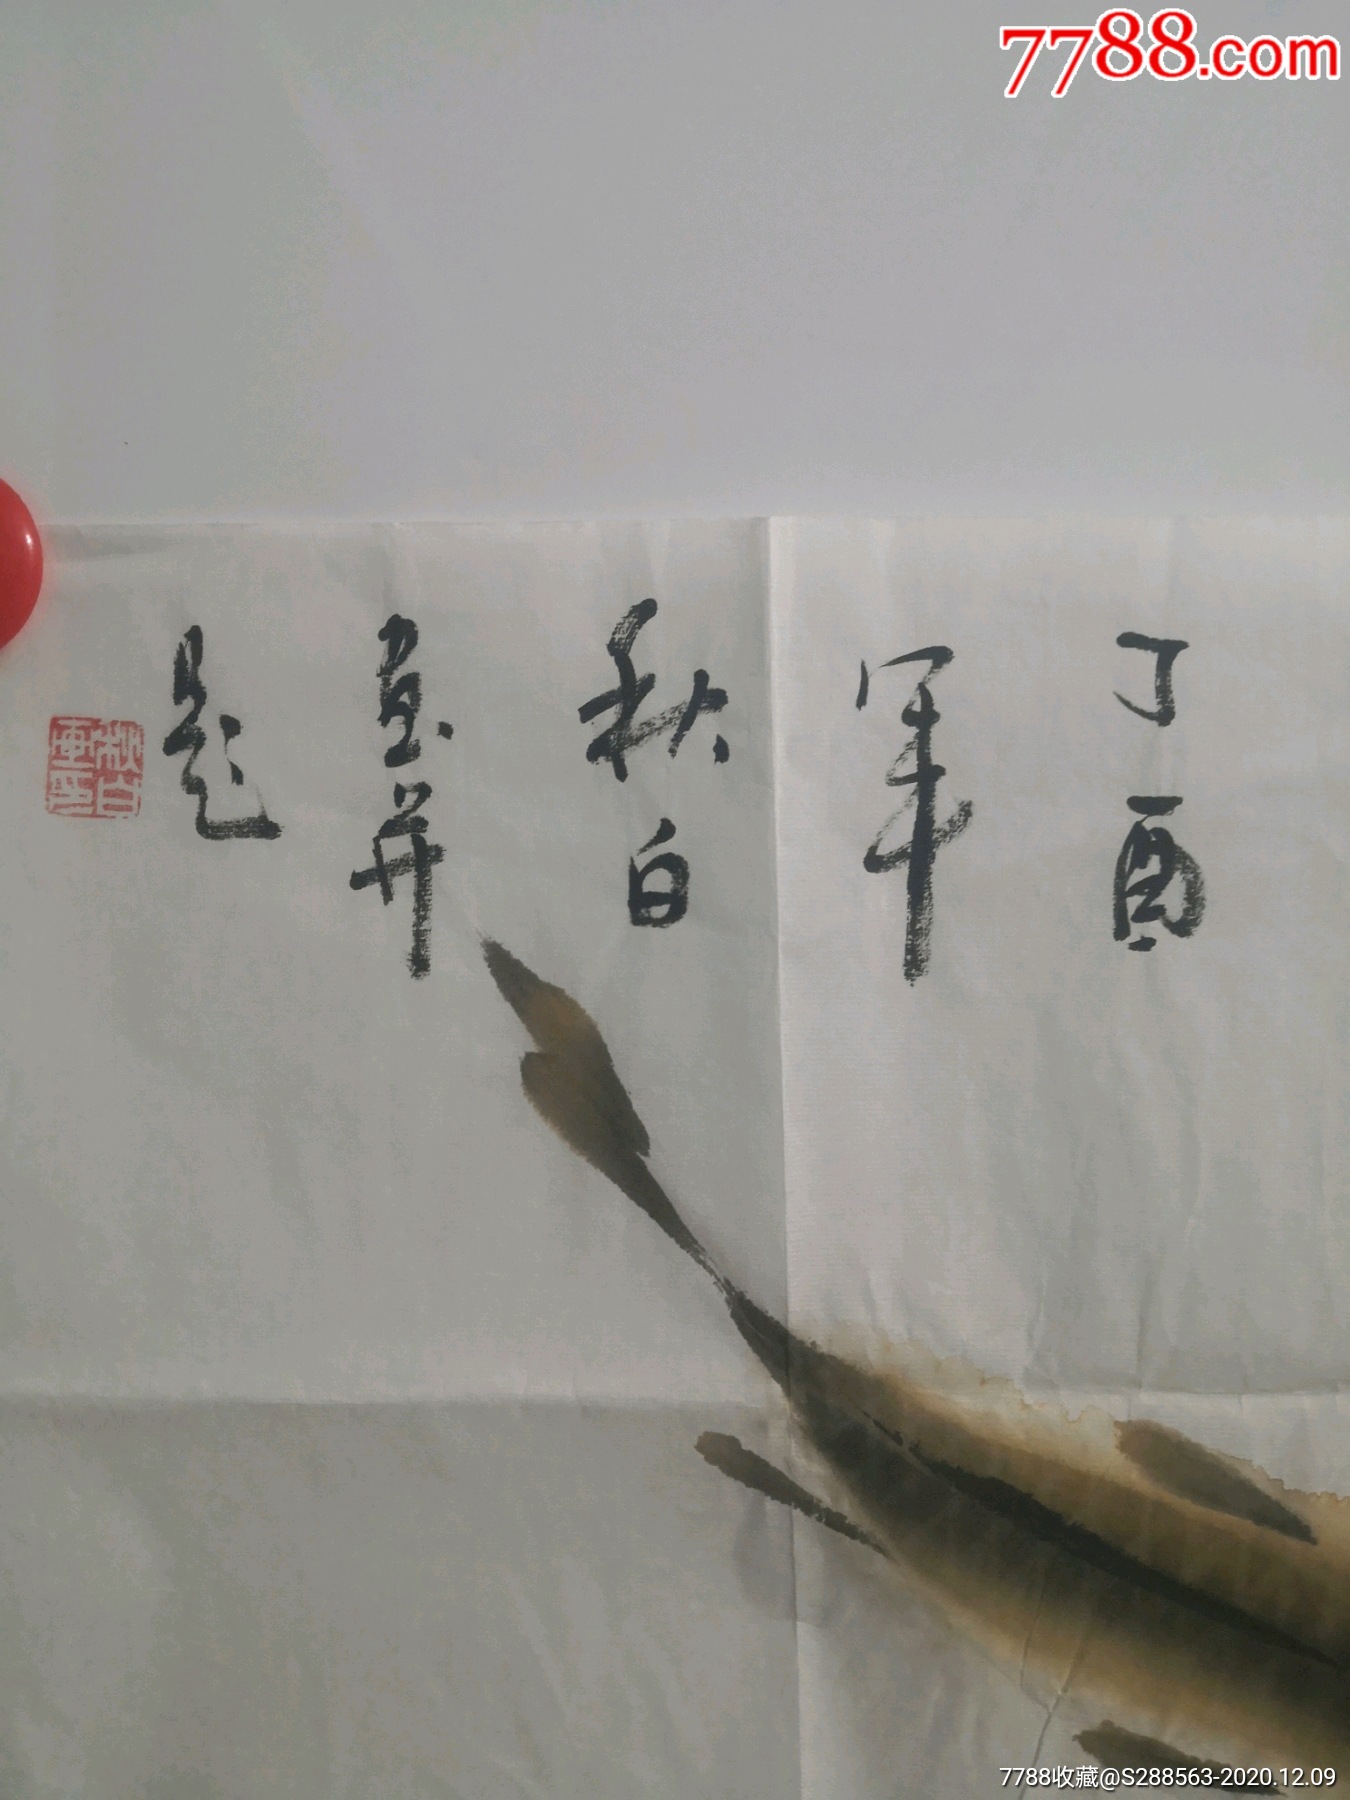 7788.com
丁酉
军
秋白
画并
题
秋白
画印
7788收藏@S288563-2020.12.09